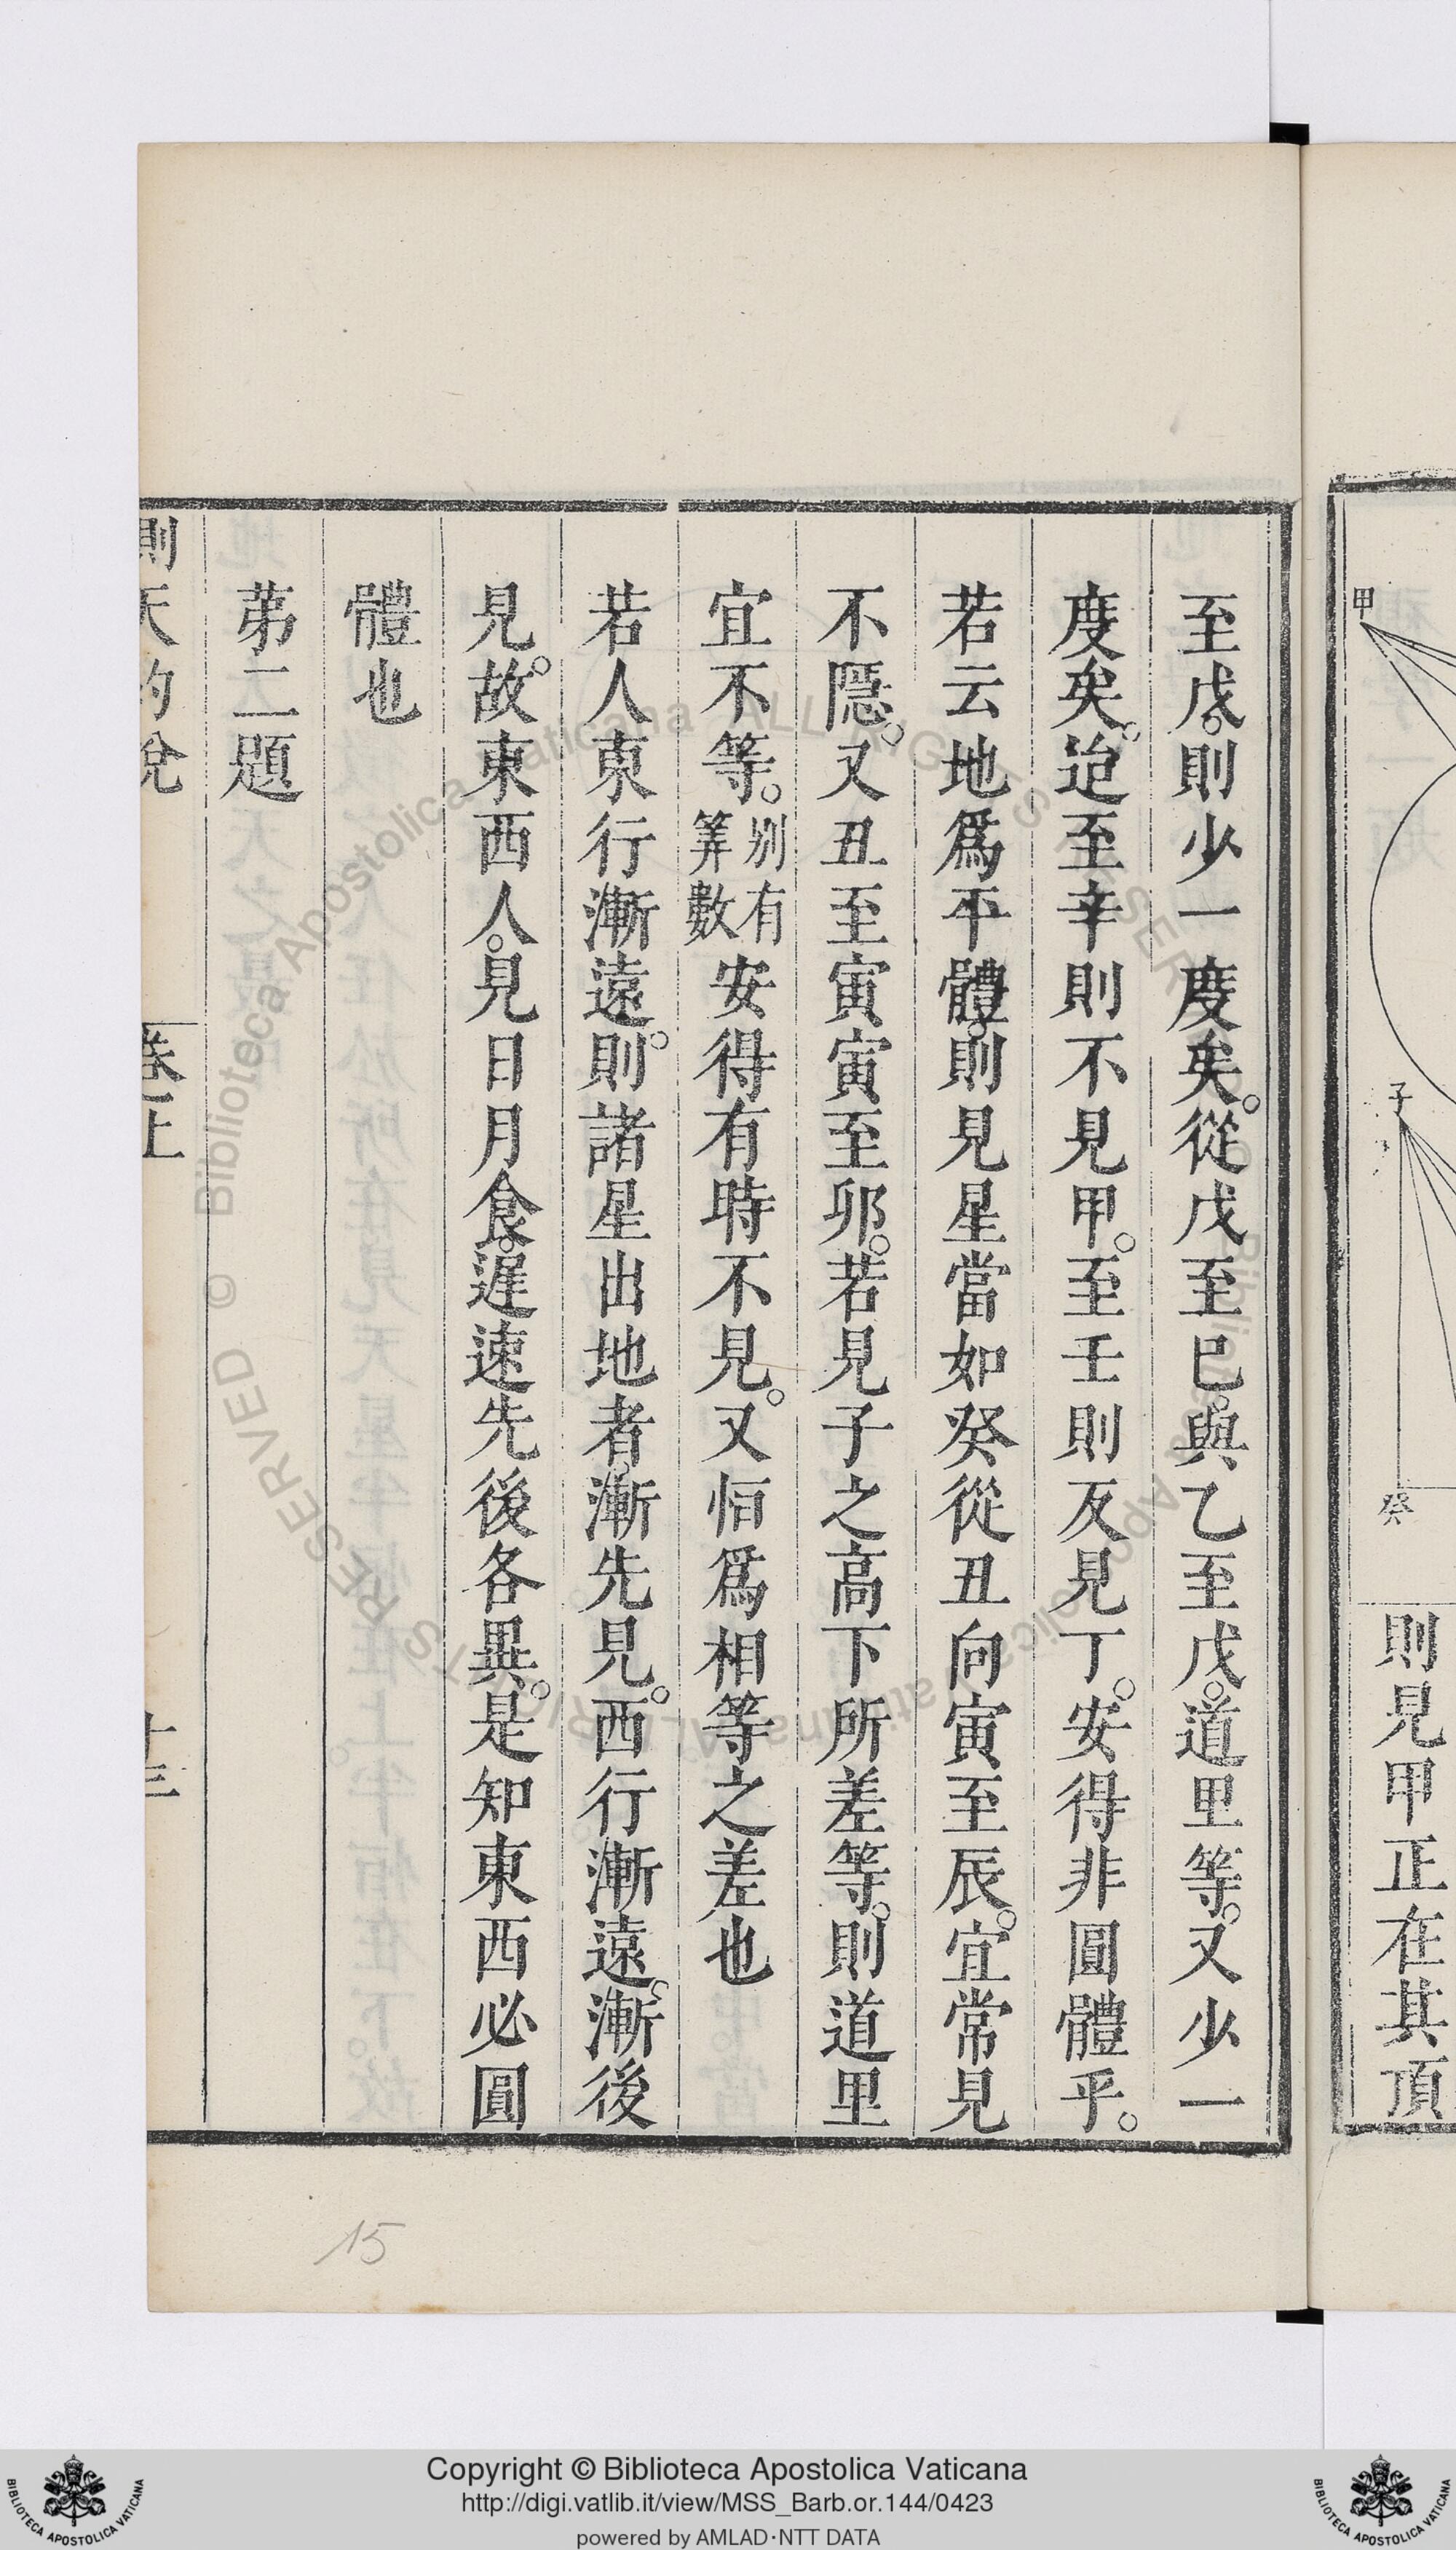 則見甲正在其頂
甲
子
癸
至戊。則少一度矣。從戊至巳。與乙至戊。道里等。又少一
度矣。迨至辛則不見甲。至壬則反見丁。安得非圓體乎。
若云地爲平體。則見星當如癸從丑向寅至辰。宜常見
不隱。又丑至寅寅至卯。若見子之高下所差等。則道里
宜不等。別有筭數安得有時不見。又恒爲相等之差也
若人東行漸遠。則諸星出地者。漸先見。西行漸遠。漸後
見。故東西人。見日月食。遲速先後各異。是知東西必圓
體也
苐二題
測天約說
卷上
十三
15
Copyright © Biblioteca Apostolica Vaticana
http://digi.vatlib.it/view/MSS_Barb.or.144/0423
powered by AMLAD·NTT DATA
BIBLIOTECA APOSTOLICA VATICANA
BIBLIOTECA APOSTOLICA VATICANA